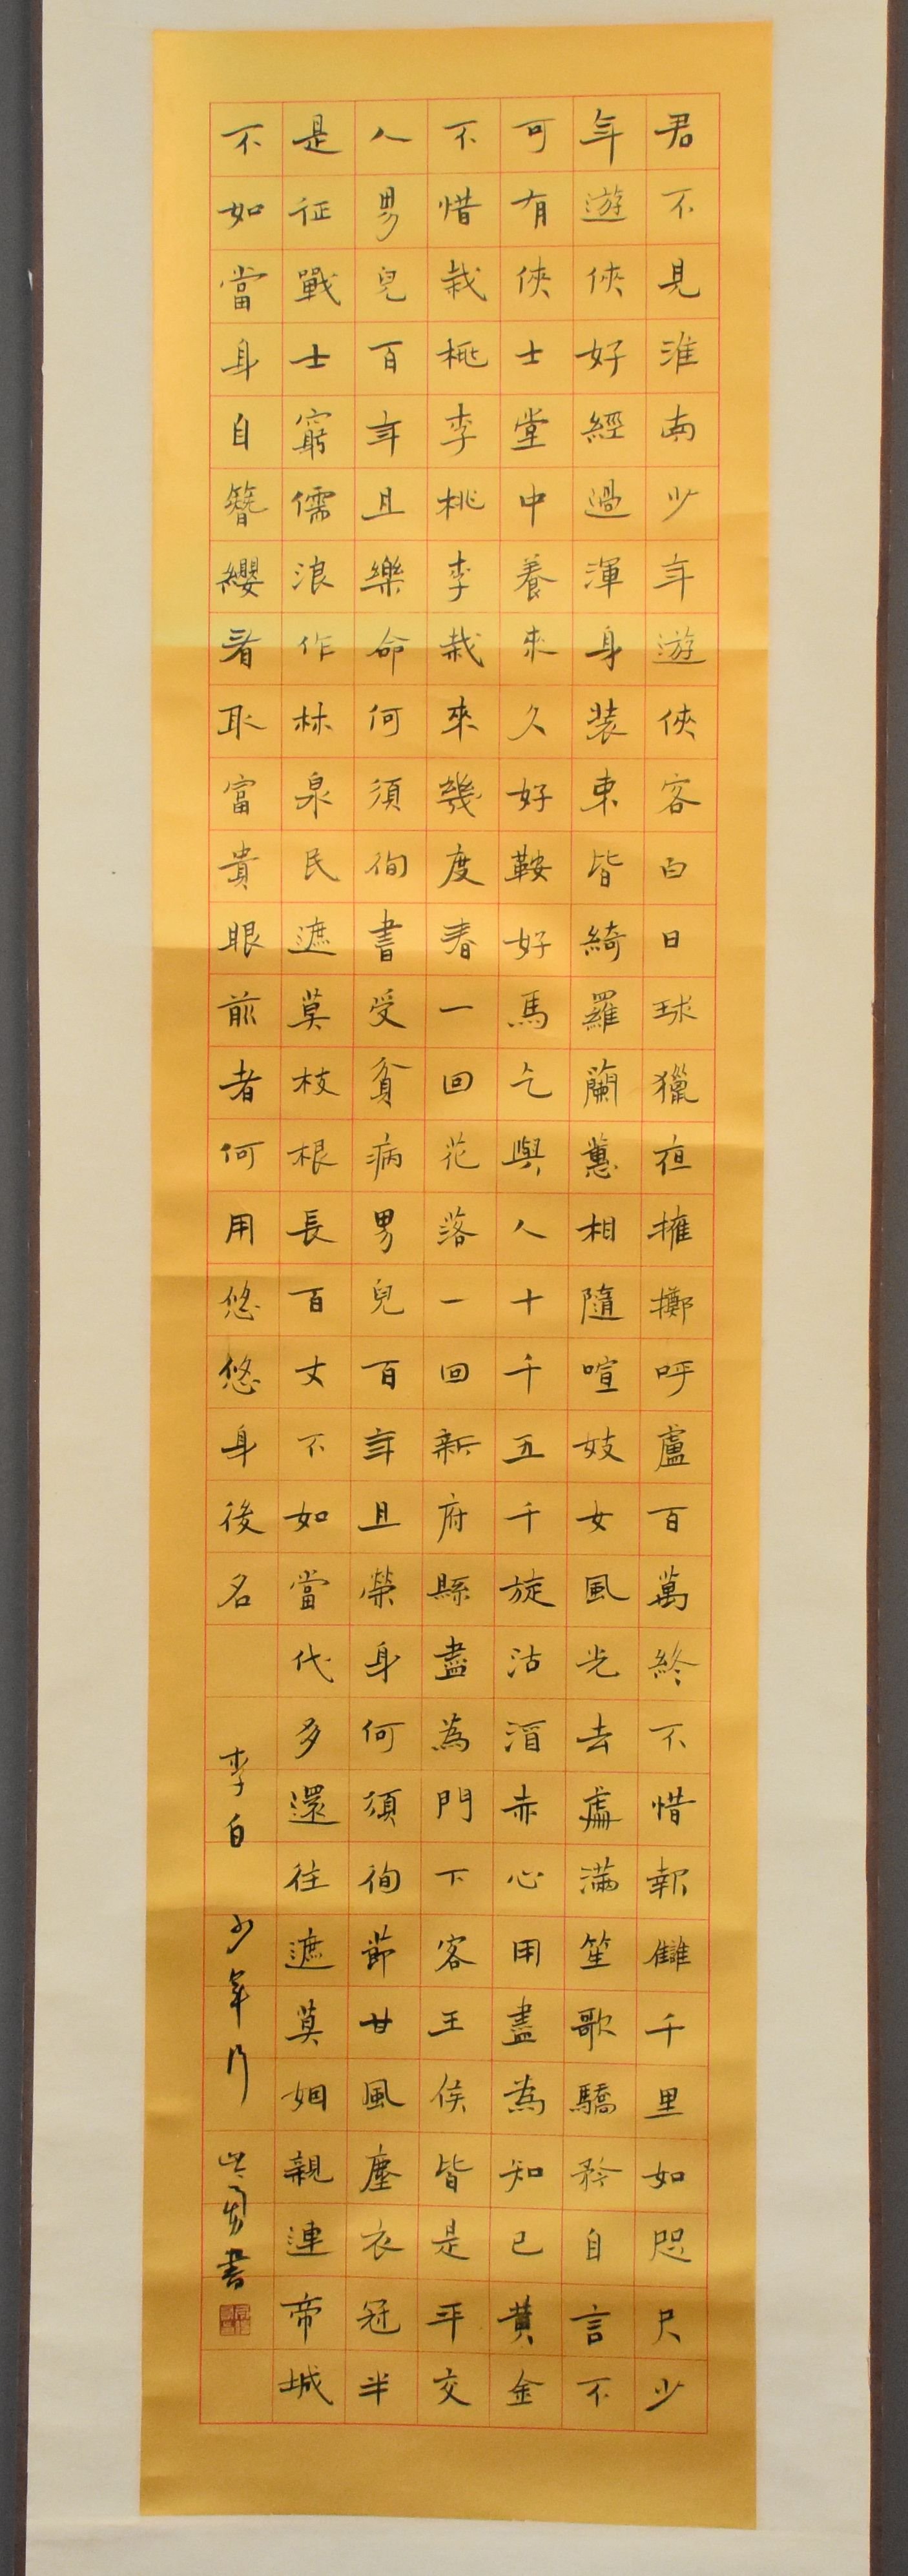 君不見淮南少年遊俠客白日球獵夜擁擲呼盧百萬終不惜報讎千里如咫尺少
年遊俠好經過渾身装束皆綺羅蘭蕙相隨喧妓女風光去處滿笙歌驕矜自言不
可有俠士堂中養來久好鞍好馬乞與人十千五千旋沽酒赤心用盡為知己黄金
不惜栽桃李桃李栽來幾度春一回花落一回新府縣盡為門下客王侯皆是平交
人男兒百年且樂命何須徇書受貧病男兒百年且榮身何須徇節甘風塵衣冠半
是征戰士窮儒浪作林泉民遮莫枝根長百丈不如當代多還往遮莫姻親連帝城
不如當身自簪纓看取富貴眼前者何用悠悠身後名 李白 少年行 書